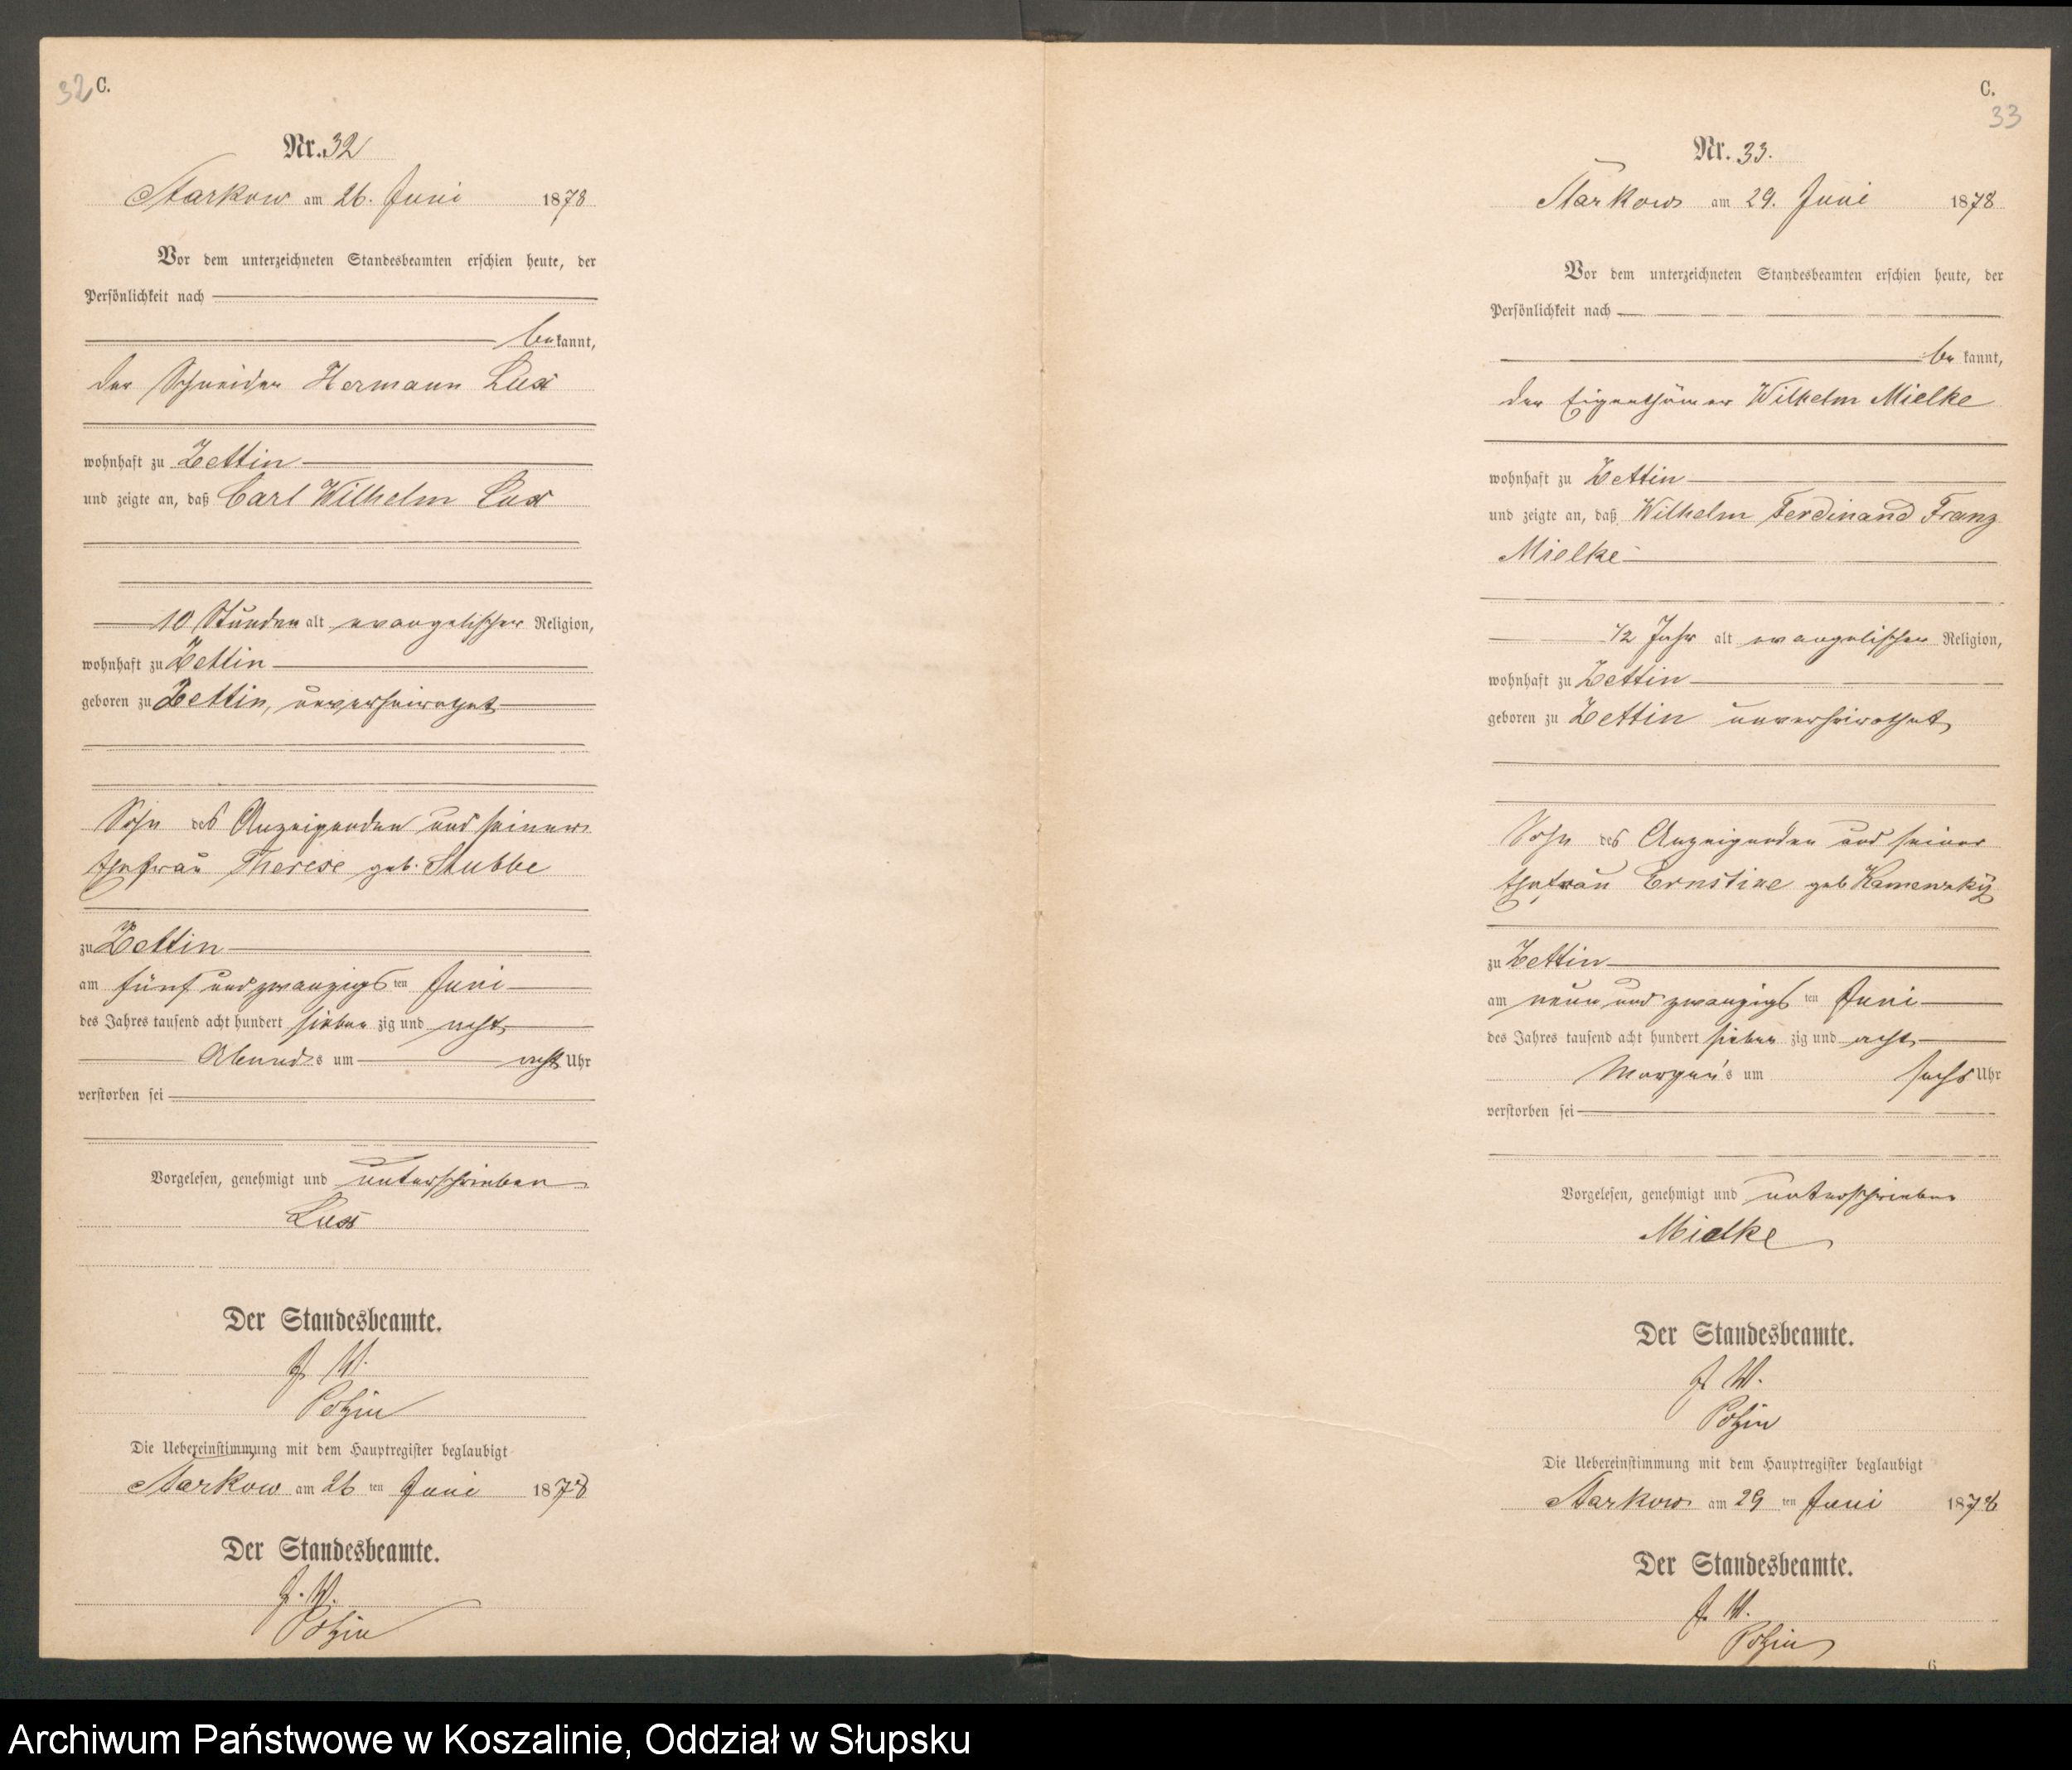 32
C.
Nr. 32
Starkow am 26. Juni 1878
Vor dem unterzeichneten Standesbeamten erschien heute, der
Persönlichkeit nach
bekannt,
der Schneider Hermann Lux
wohnhaft zu Zettin
und zeigte an, daß Carl Wilhelm Lux
10 Stunden alt evangelischer Religion,
wohnhaft zu Zettin
geboren zu Zettin, unverheirathet
Sohn des Anzeigenden und seiner
Ehefrau Therese geb. Stubbe
zu Zettin
am fünf und zwanzigsten Juni
des Jahres tausend acht hundert siebenzig und acht
Abends um acht Uhr
verstorben sei
Vorgelesen, genehmigt und unterschrieben
Lux
Der Standesbeamte.
J. V.
Die Uebereinstimmung mit dem Hauptregister beglaubigt
Starkow am 26ten Juni 1878
Der Standesbeamte.
J. V.
C.
33
Nr. 33.
Starkow am 29. Juni 1878
Vor dem unterzeichneten Standesbeamten erschien heute, der
Persönlichkeit nach
bekannt,
der Eigenthümer Wilhelm Mielke
wohnhaft zu Zettin
und zeigte an, daß Wilhelm Ferdinand Franz
Mielke
1/2 Jahr alt evangelischer Religion,
wohnhaft zu Zettin
geboren zu Zettin unverheirathet
Sohn des Anzeigenden und seiner
Ehefrau Ernstine geb
zu Zettin
am neun und zwanzigsten Juni
des Jahres tausend acht hundert siebenzig und acht
Morgens um sechs Uhr
verstorben sei
Vorgelesen, genehmigt und unterschrieben
Mielke
Der Standesbeamte.
J. V.
Die Uebereinstimmung mit dem Hauptregister beglaubigt
Starkow am 29ten Juni 1878
Der Standesbeamte.
J. V.
6
Archiwum Państwowe w Koszalinie, Oddział w Słupsku